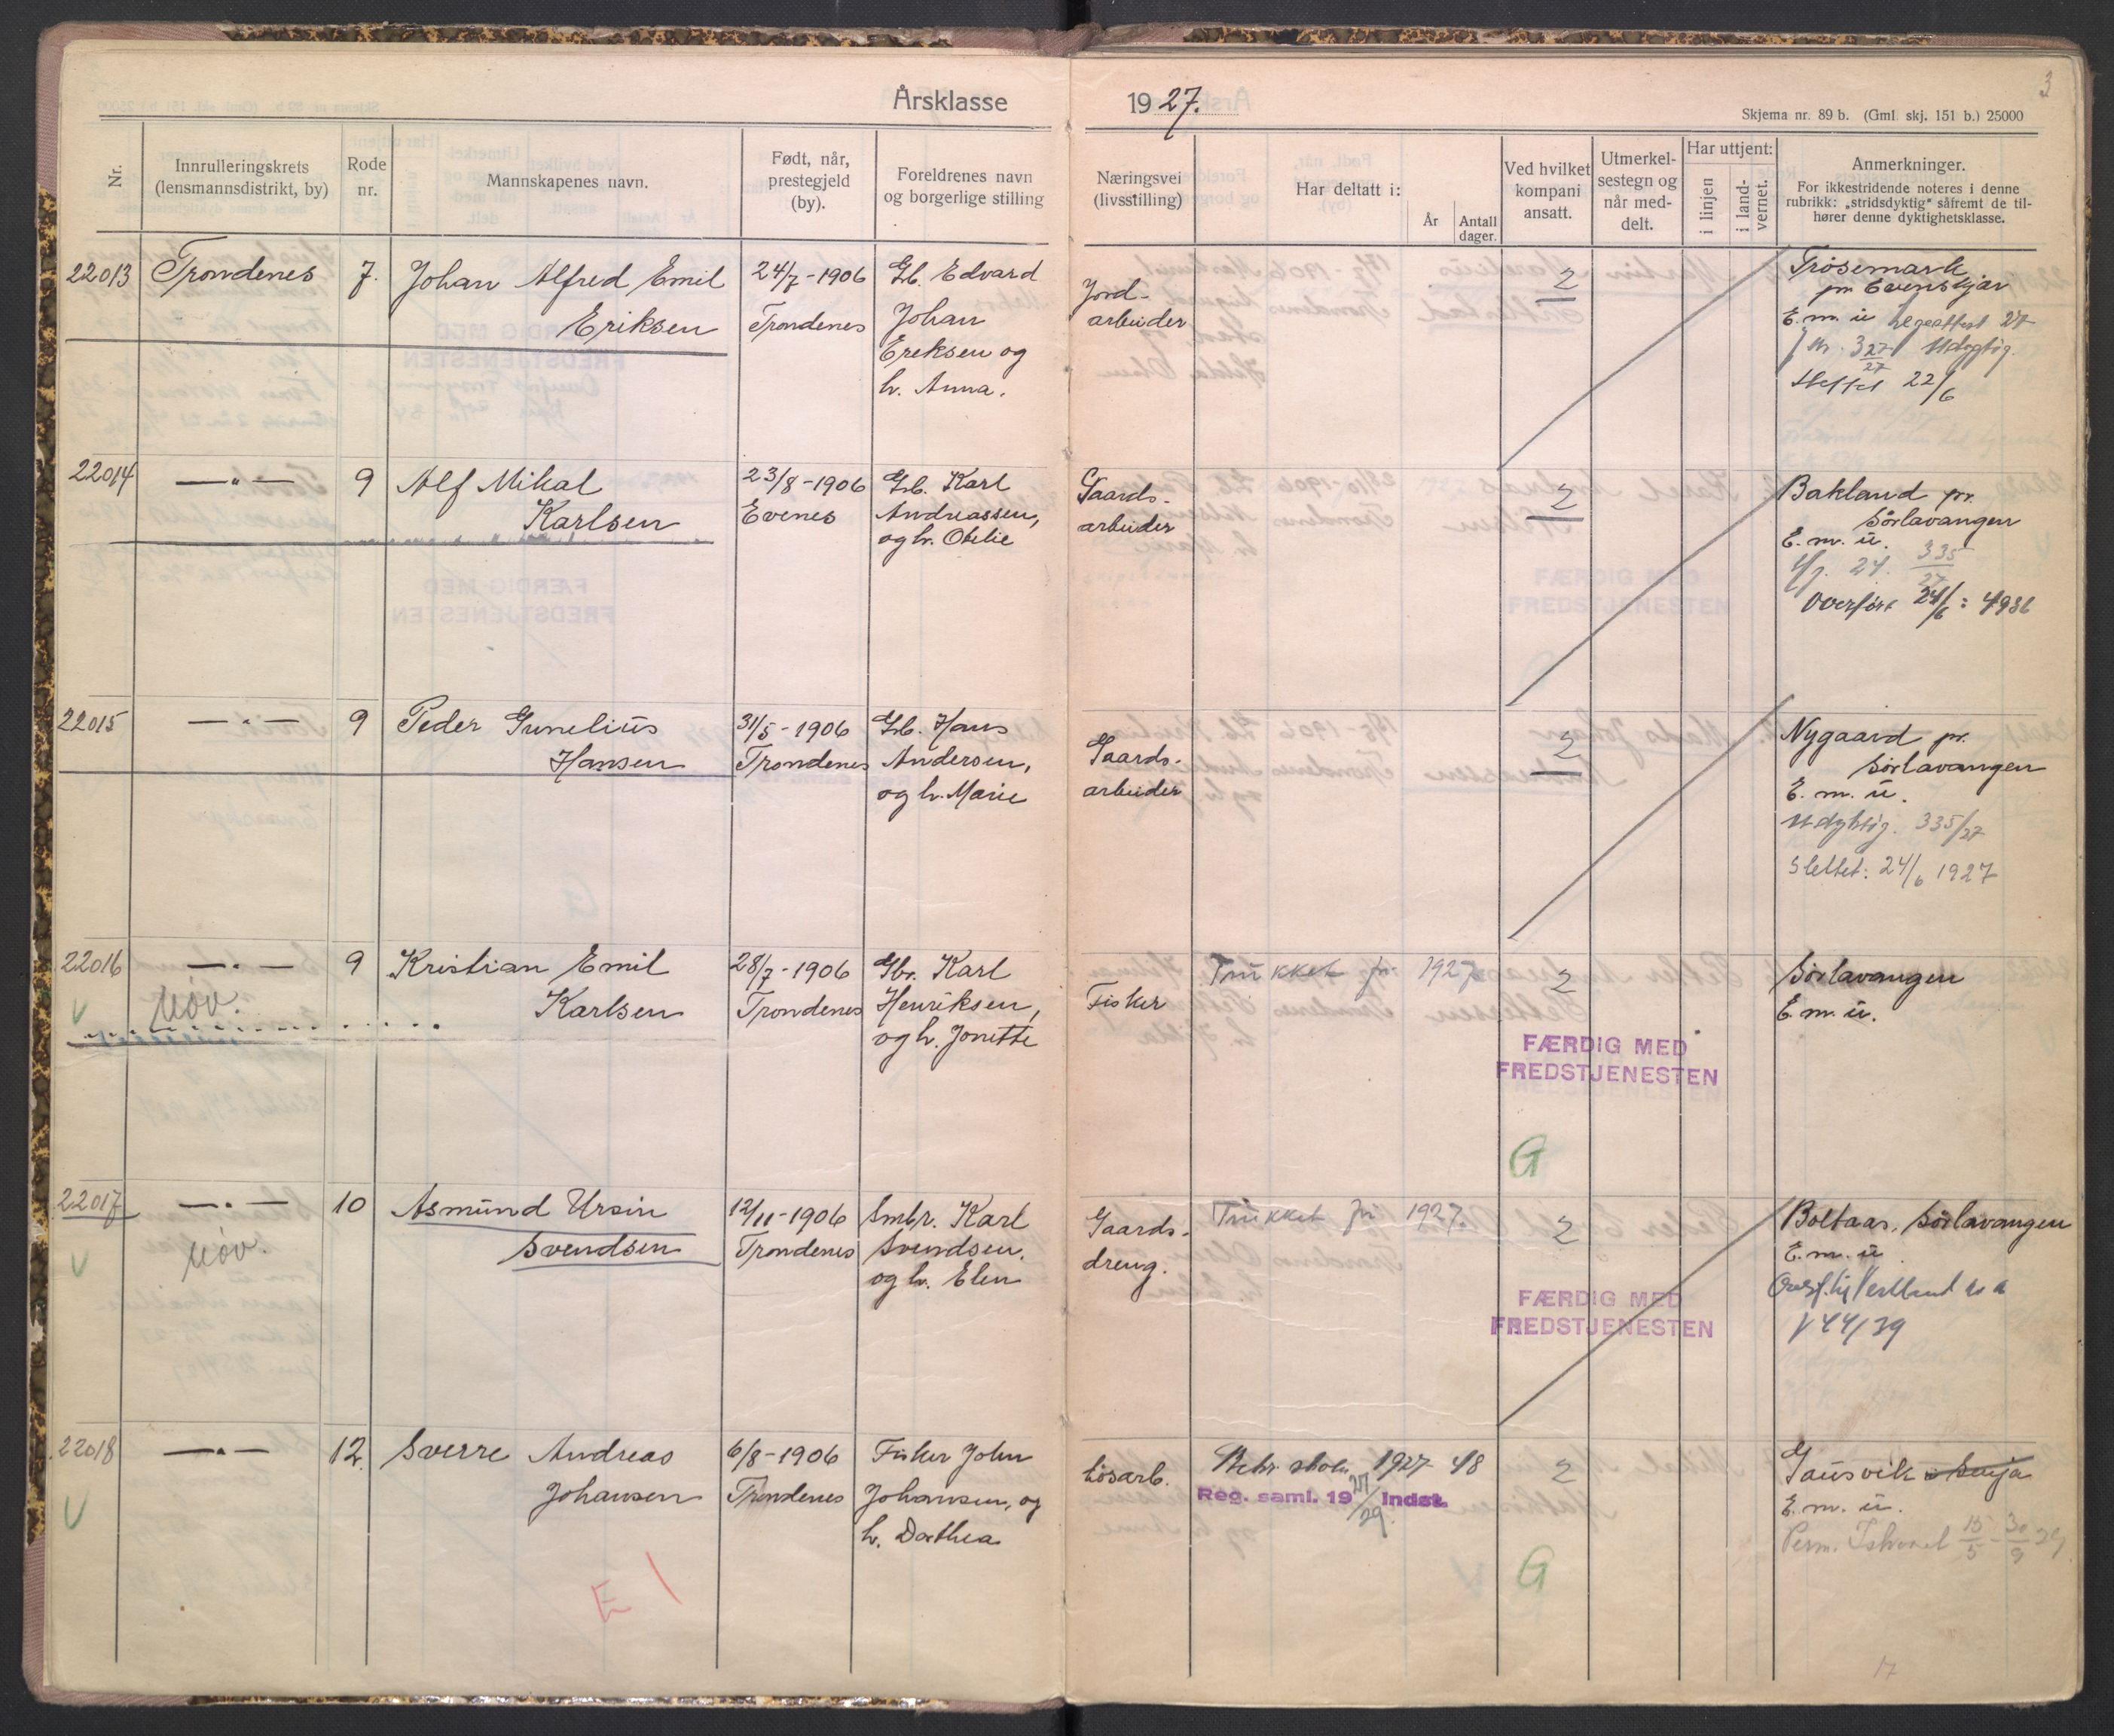 3
Årsklasse 1927.
Skjema nr. 89 b. (Gml skj. 151 b.) 25000
Nr.
Innrulleringskrets
(lensmannsdistrikt, by)
Rode
nr.
Mannskapenes navn.
Født, når,
prestegjeld
(by).
Foreldrenes navn
og borgerlige stilling
Næringsvei
(livsstilling)
Har deltatt i:
År
Antall
dager.
Ved hvilket
kompani
ansatt.
Utmerkel-
sestegn og
når med-
delt.
Har uttjent:
i linjen
i land-
vernet.
Anmerkninger.
For ikkestridende noteres i denne
rubrikk: „stridsdyktig“ såfremt de til-
hører denne dyktighetsklasse.
22013 Trondenes 7. Johan Alfred Emil
Eriksen
24/7-1906
Trondenes
Gb. Edvard
Johan
Ereksen og
h. Anna.
Jord-
arbeider
2
Trøsemark
pr Evenskjær
E. m. ü
27
Udygtig.
22/6
22014 —„— 9 Alf Mikal
Karlsen
23/8-1906
Evenes
Gb. Karl
Andreassen,
og h. Otelie
Gaards-
arbeider
2
Bakland pr.
Sørlavangen
E. m. ü.
335
27
Overført 24/6: 4986
22015 —„— 9 Peder Gunelius
Hansen
31/5-1906
Trondenes
Gb. Hans
Andersen,
og h. Marie
Gaards-
arbeider
2
Nygaard pr.
Sørlavangen
E. m. ü.
Udyktig. 335/27
Slettet: 24/6 1927
22016 —„— 9 Kristian Emil
Karlsen
28/7-1906
Trondenes
Gbr. Karl
Henriksen,
og h. Jonette
Fisker
Trukket fri 1927
2
FÆRDIG MED
FREDSTJENESTEN
G
Sørlavangen
E. m. ü.
22017 —„— 10 Asmünd Ursin
Svendsen
12/11-1906
Trondenes
Smbr. Karl
Svendsen,
og h. Elen
Gaards-
dreng.
Trukket fri 1927.
2
FÆRDIG MED
FREDSTJENESTEN
Boltaas, Sørlavangen
E. m. ü
22018 —„— 12. Sverre Andreas
Johansen
6/8-1906
Trondenes
Fisker John
Johansen, og
h. Dorthea
Løsarb.
Rekr skole 1927 48
Reg. saml. 19 27/29 Indst.
2
G
Gausvik
E. m. ü.
Perm. 15/5 - 30/9 29
E